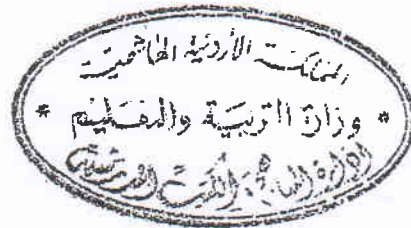 المملكة الأردنية الهاشمية
* وزارة التربية والتعليم *
إدارة المناهج والكتب المدرسية